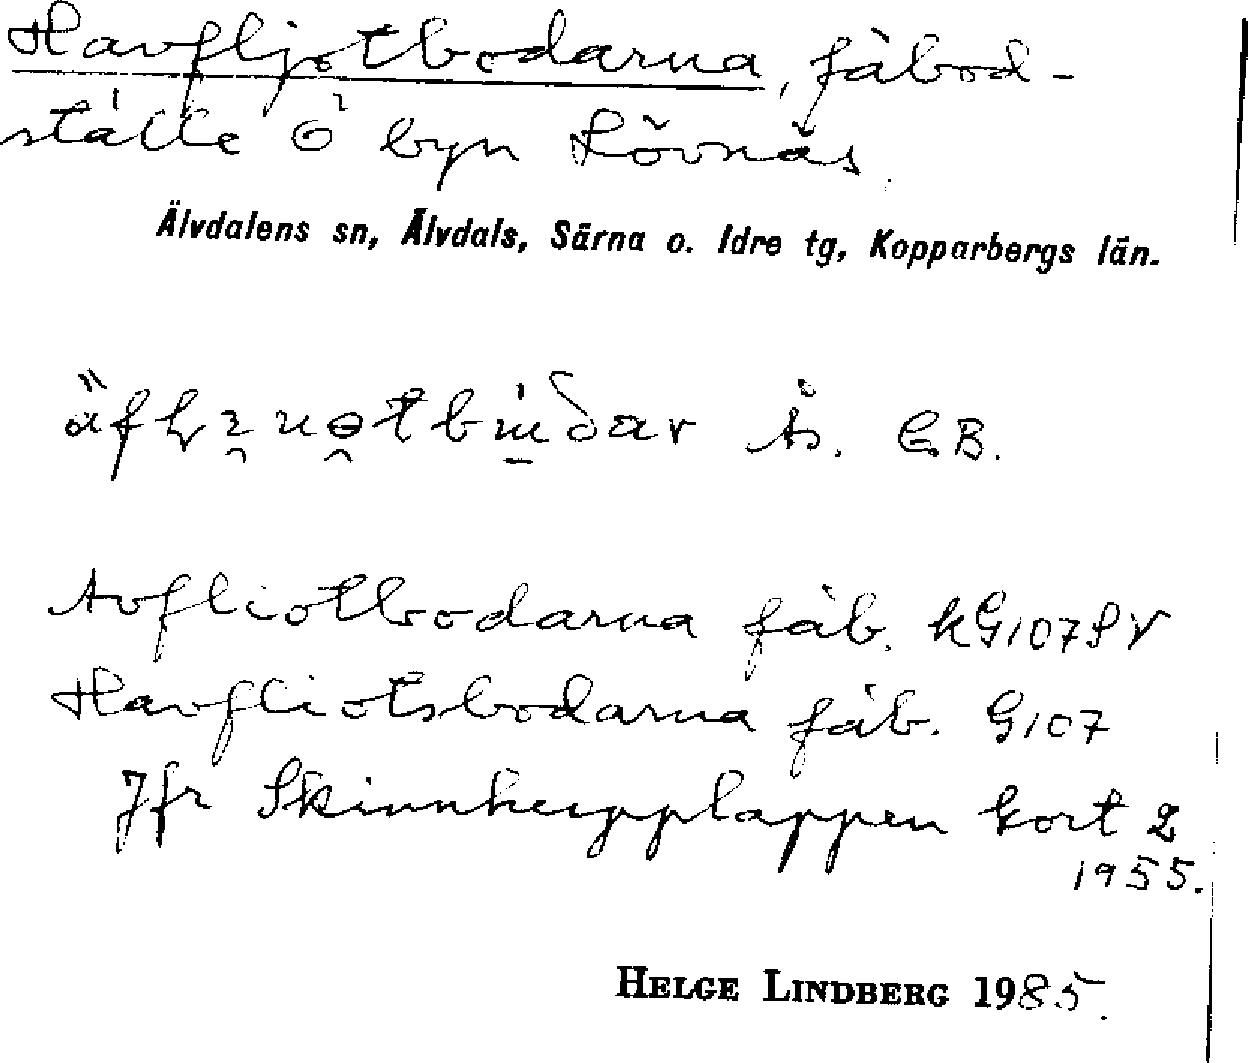 Havfljotbodarna, fäbod-
ställe O byn Lövnäs.
Älvdalens sn, Älvdals, Särna o. Idre tg, Kopparbergs län.
Ås. E.B.
Avfliotbodarna fäb. KG107SV
Havfliotsbodarna fäb. G107
Jfr Skinnhupplappen kort 2
1955.
HELGE LINDBERG 1985.